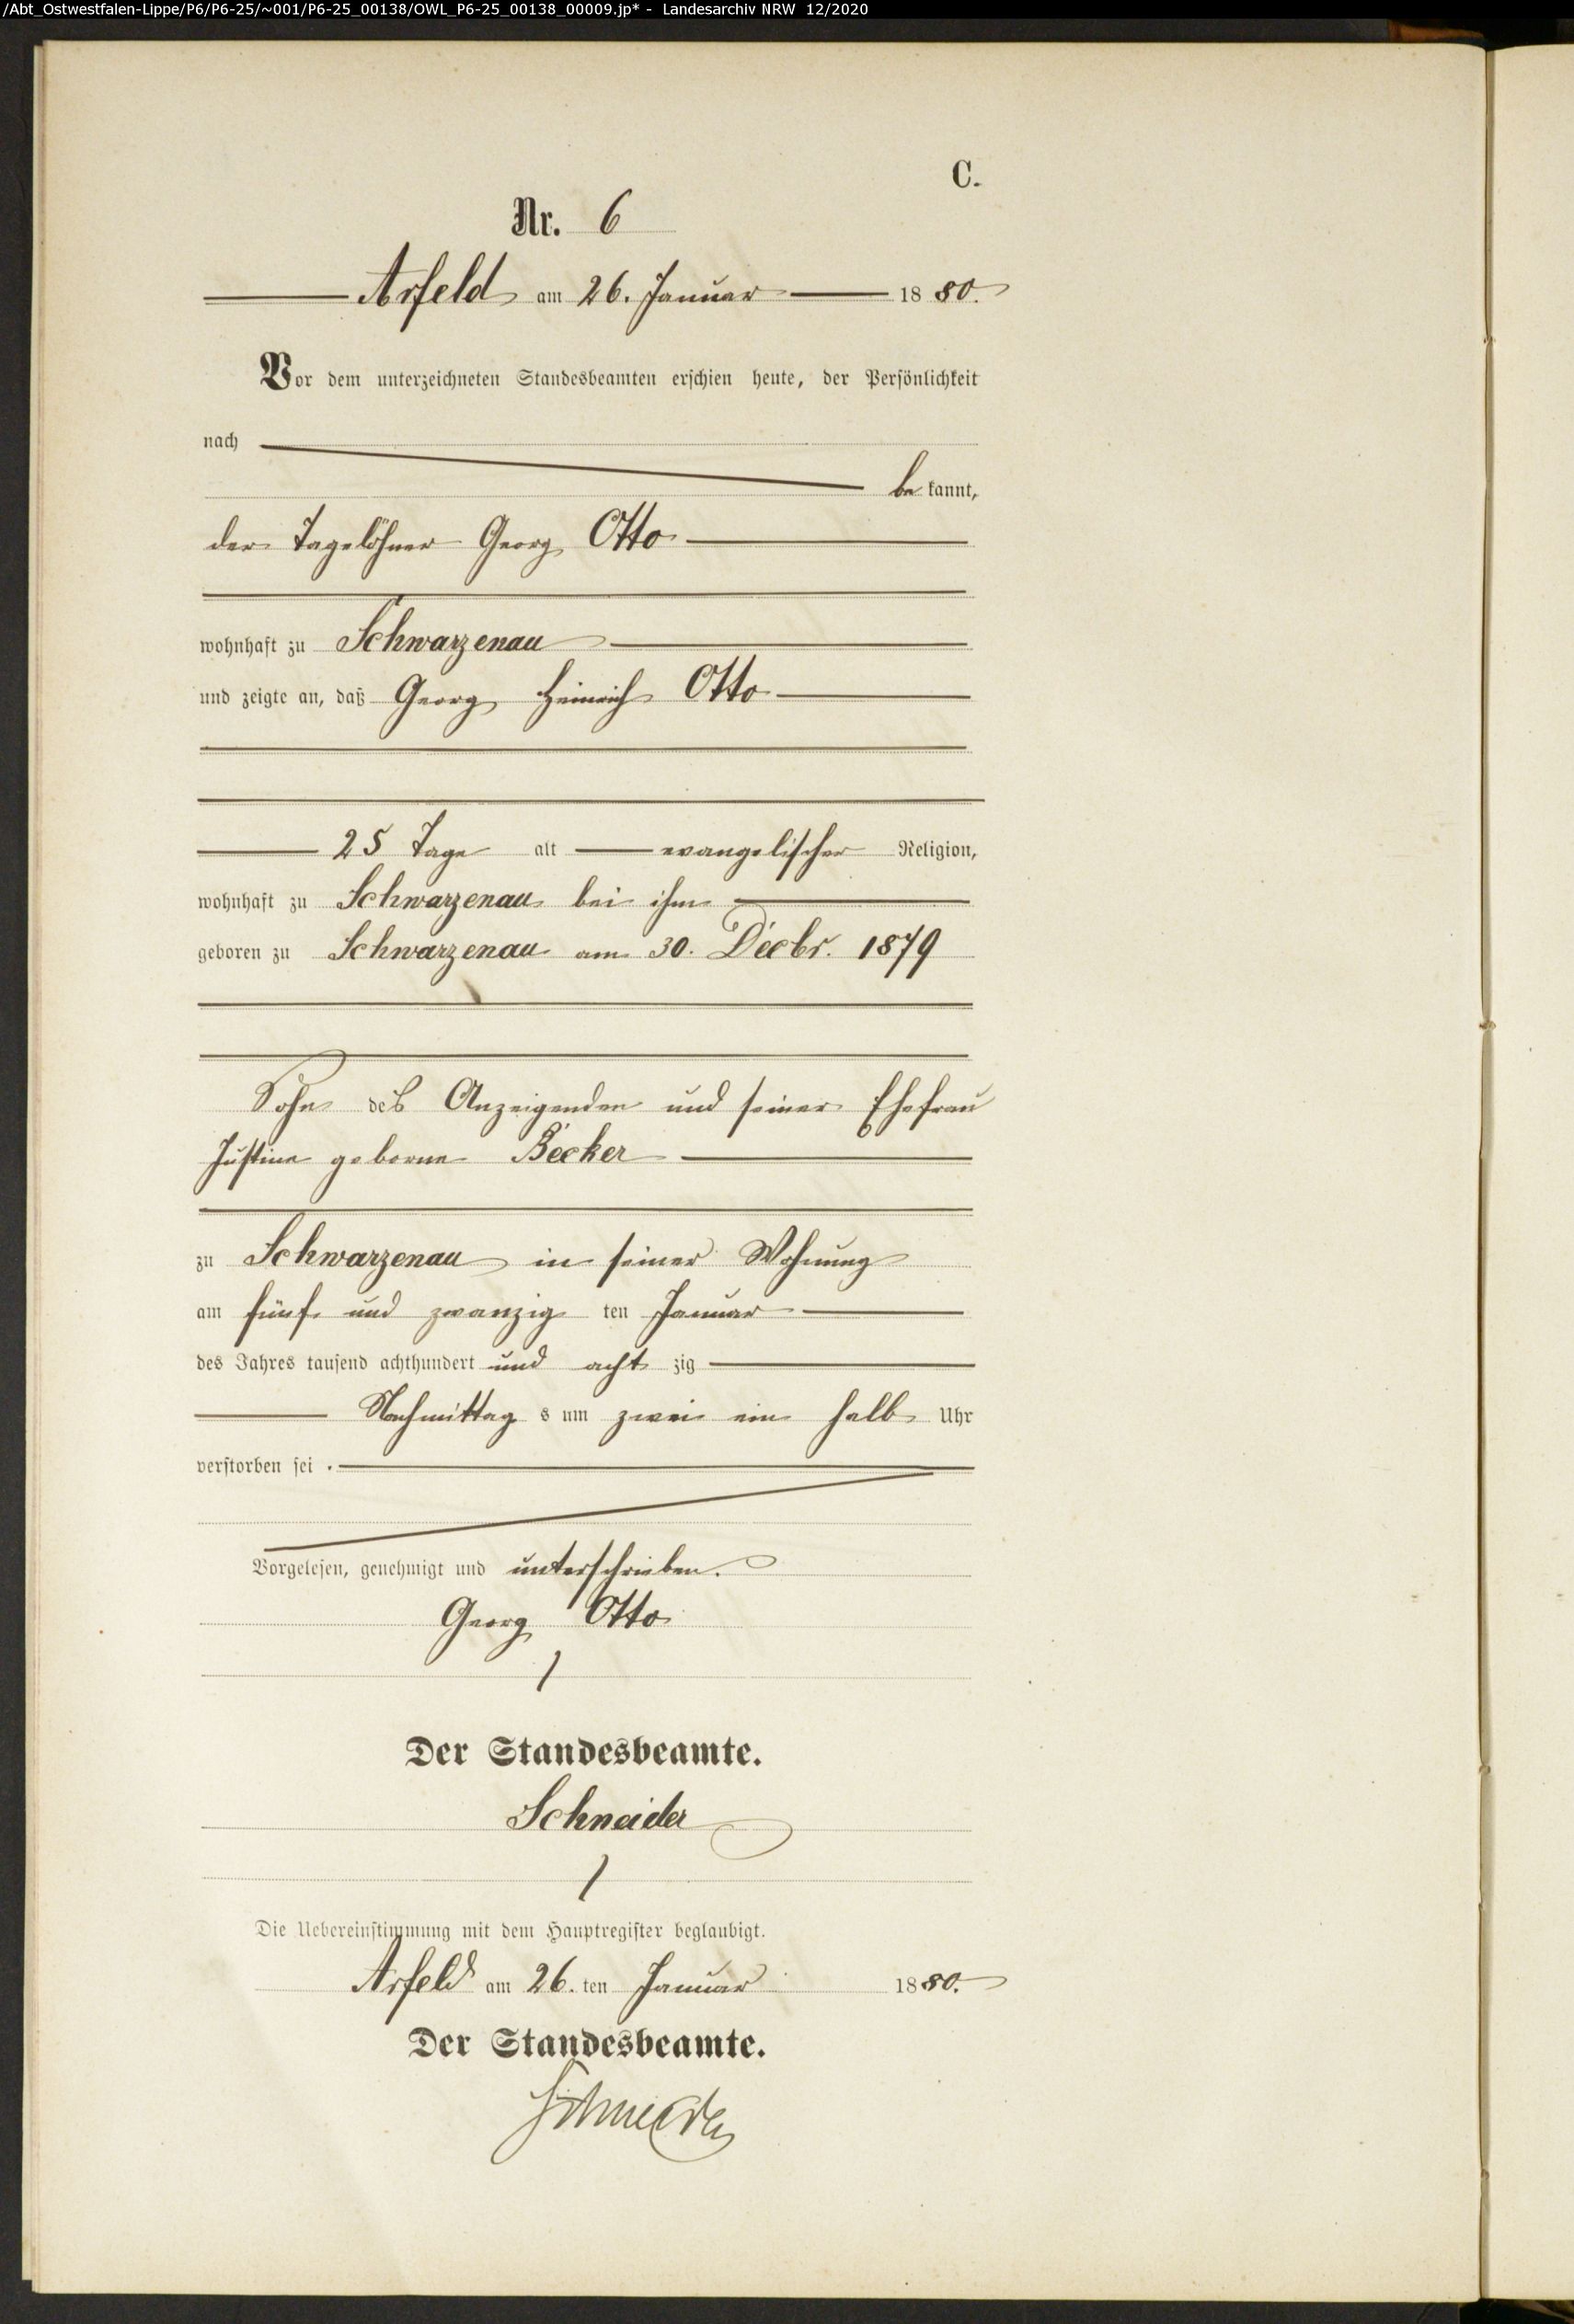 /Abt_Ostwestfalen-Lippe/P6/P6-25/~001/P6-25_00138/OWL_P6-25_00138_00009.jp* - Landesarchiv NRW 12/2020
C.
Nr. 6
Arfeld am 26. Januar 1880.
Vor dem unterzeichneten Standesbeamten erschien heute, der Persönlichkeit
nach
bekannt,
der Tagelöhner Georg Otto
wohnhaft zu Schwarzenau
und zeigte an, daß Georg Heinrich Otto
25 Tage alt evangelischer Religion,
wohnhaft zu Schwarzenau bei ihm
geboren zu Schwarzenau am 30. Decbr. 1879
Sohn des Anzeigenden und seiner Ehefrau
Justine geborne Becker
zu Schwarzenau in seiner Wohnung
am fünf und zwanzig ten Januar
des Jahres tausend achthundert und acht zig
Nachmittag s um zwei ein halb Uhr
verstorben sei.
Vorgelesen, genehmigt und unterschrieben.
Georg Otto
Der Standesbeamte.
Schneider
Die Uebereinstimmung mit dem Hauptregister beglaubigt.
Arfeld am 26. ten Januar 1880.
Der Standesbeamte.
Schneider